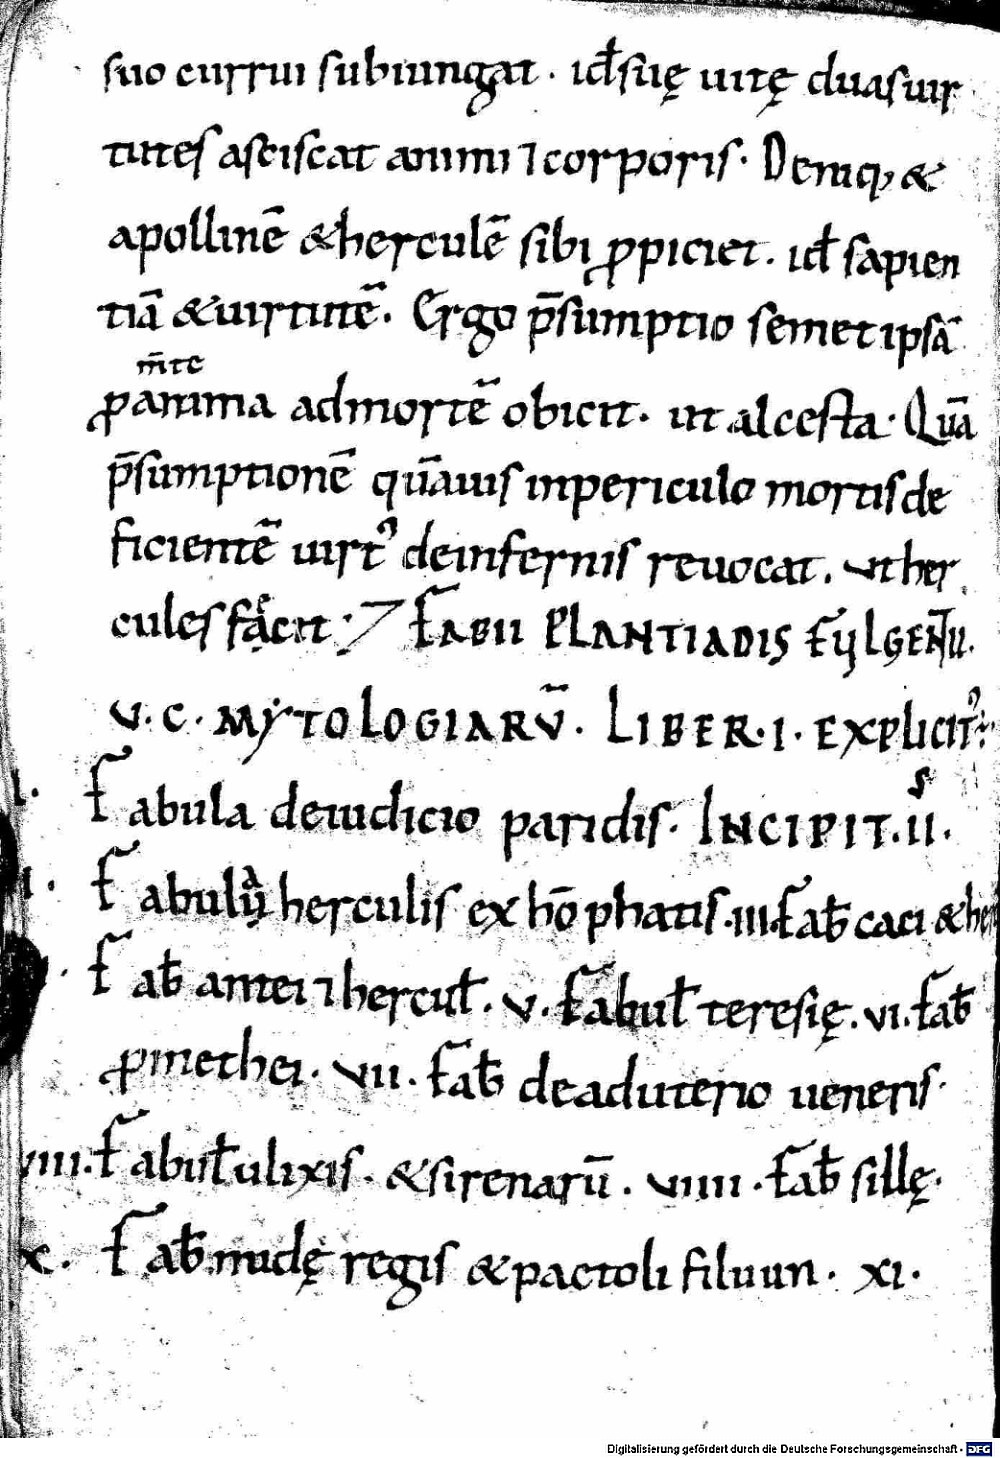 suo currui subiungat · id̄ suę uitę duas uir
tutes asciscat animi ⁊ corporis · Deniq; &
apollinē & herculē sibi ꝓpiciet · id̄ sapien
tiā & uirtutē · Ergo p̄sumptio semet ipsā
m̄te
ꝓ anima ad mortē obicit · ut alcesta · Quā
p̄sumptionē quāuis in periculo mortis de
ficientē uirt᾽ de infernis reuocat · ut her
cules fęcit ·
FABII PLANTIADIS FULGENT̄II ·
V · C · MYTOLOGIARŪ · LIBER · I · EXPLICIT
I · Fabula de iudicio paridis · INCIPIT · II ·
s
Fabula herculis ex hō phatis · III · fab̄ caci & her
Fab̄ antei ⁊ hercul̄ · V · fabul̄ teresię · VI · fab̄
ꝓmethei · VII · fab̄ de aduterio ueneris ·
VIII · Fabul̄ ulixis · & sirenarū · VIIII · fab̄ sillę ·
X · Fab̄ midę regis & pactoli fluuii · XI ·
Digitalisierung gefördert durch die Deutsche Forschungsgemeinschaft - DFG